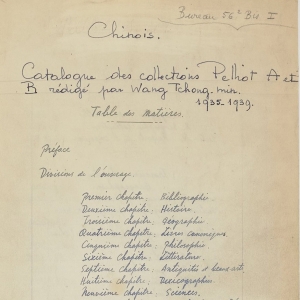 Bureau 56² Bis I
Chinois.
Catalogue des collections Pelliot A et
B rédigé par Wang Tchong-min.
1935-1939.
Table des matières.
Préface
Divisions de l'ouvrage.
Premier chapitre, Bibliographie
Deuxième chapitre, Histoire
Troisième chapitre, Géographie
Quatrième chapitre, Livres canoniques,
Cinquième chapitre, Philosophie
Sixième chapitre, Littérature,
Septième chapitre, Antiquités et beaux arts,
Huitième chapitre,
Neuvième chapitre, Sciences,